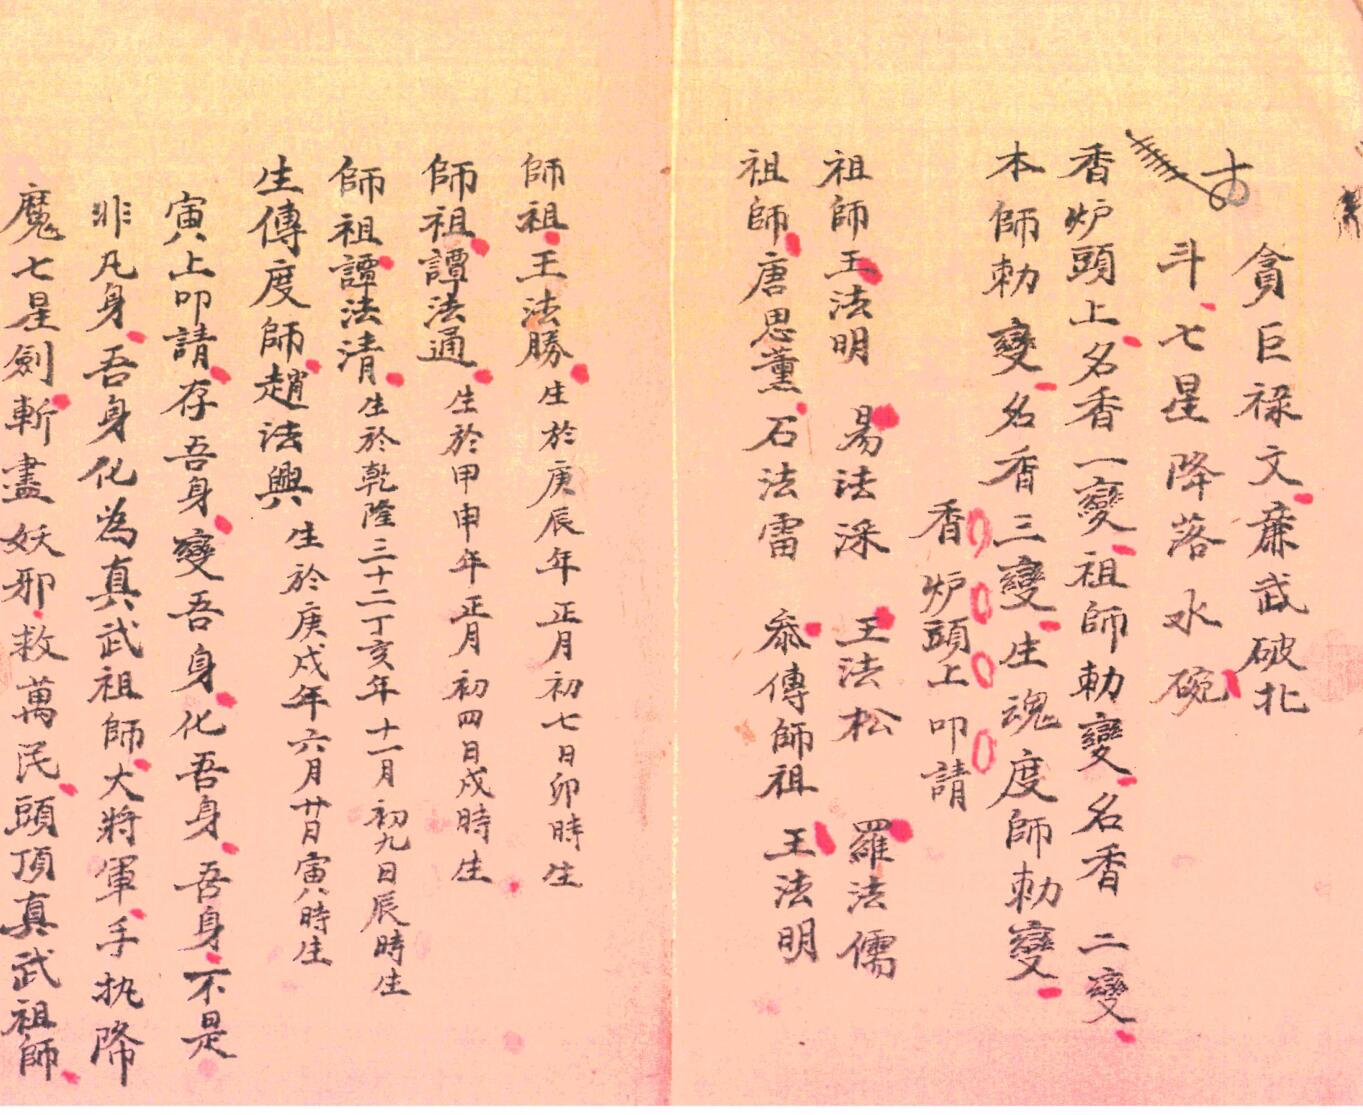 貪巨禄文廉武破北
斗七星降落水碗
香炉頭上名香一變祖師勅變名香二變
本師勅變名香三變生魂度師勅變
香炉頭上叩請
祖師王法明 易法深 王法松 羅法儒
祖師唐思薫石法雷 叅傳師祖 王法明
師祖王法勝生於庚辰年正月初七日卯時生
師祖譚法通生於甲申年正月初四日戍時生
師祖譚法清生於乾隆三十二丁亥年十一月初九日辰時生
生傳度師趙法興生於庚戍年六月廿日寅時生
寅上叩請存吾身變吾身化吾身吾身不是
非凡身吾身化為真武祖師大將軍手执降
魔七星劍斬盡妖邪救萬民頭頂真武祖師